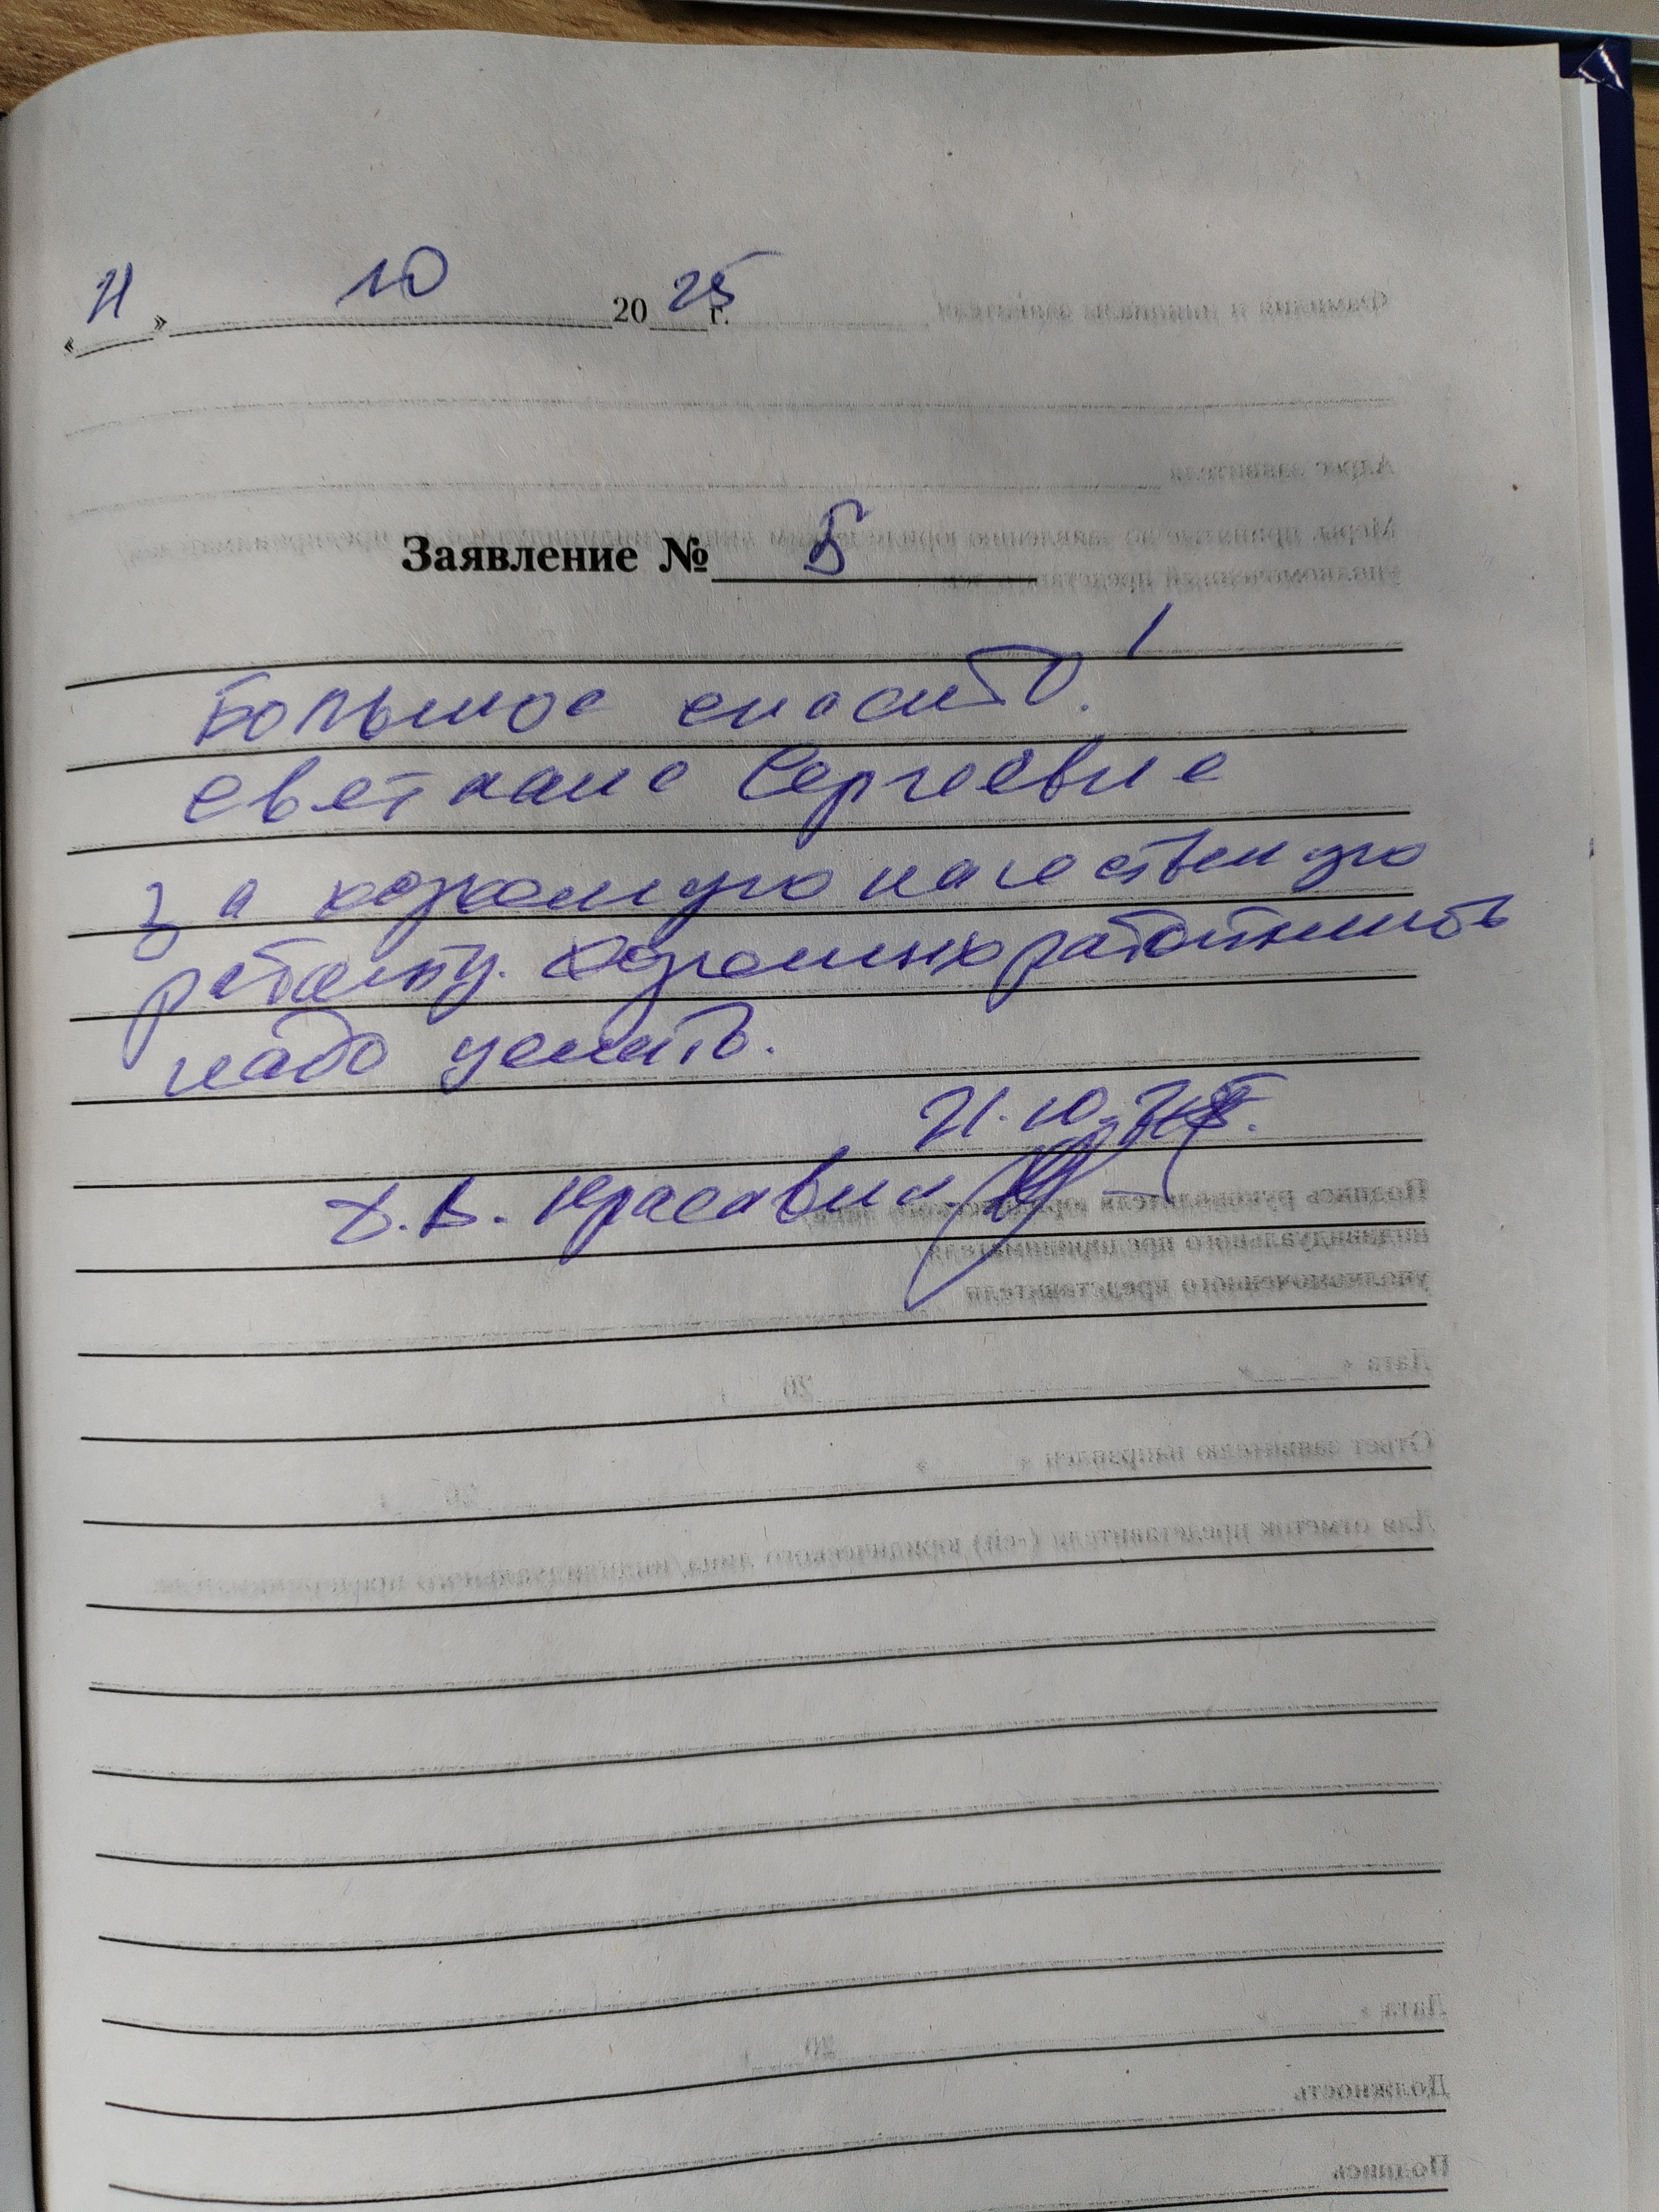 « 21 » 10 20 25 г.
Заявление № 5
Большое спасибо!
Светлане Сергеевне
за огромную качественную
работу. Огромных работников
надо ценить.
21.10.25.
Д.В. Красавин